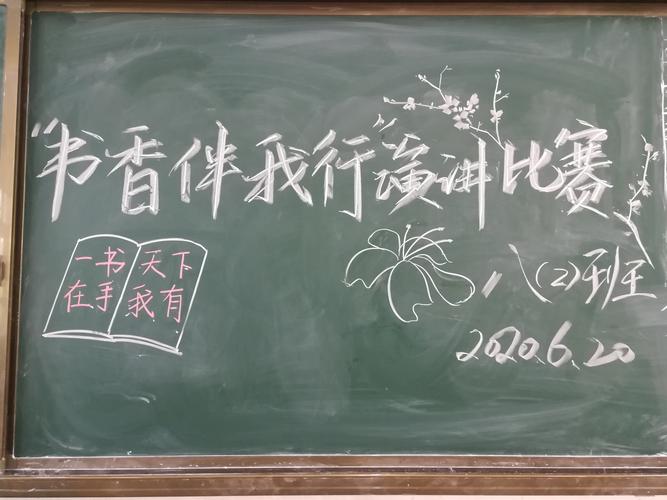 “书香伴我行”演讲比赛
一书 天下
在手 我有
八(2)班
2020.6.20